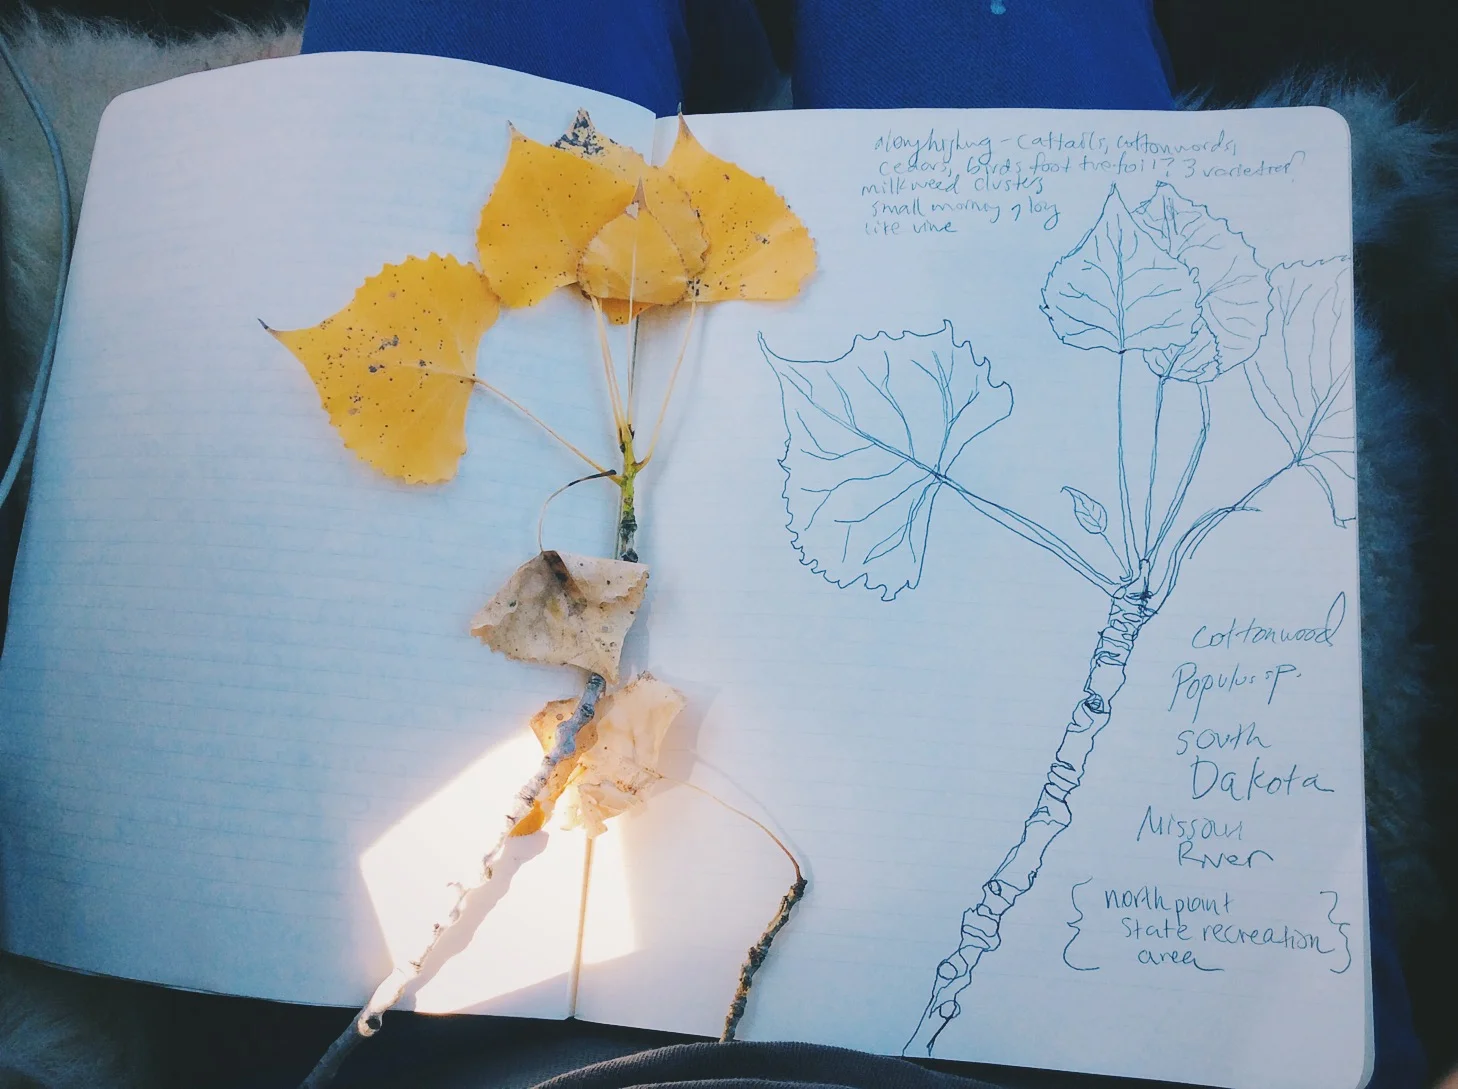 along hishwg - cattails, cottonwoods,
cedars, birds foot trefoil? 3 varieties?
milkweed clusters
small morning glory
like vine
Cottonwood
Populus sp.
South
Dakota
Missouri
River
{ north point
state recreation
area }